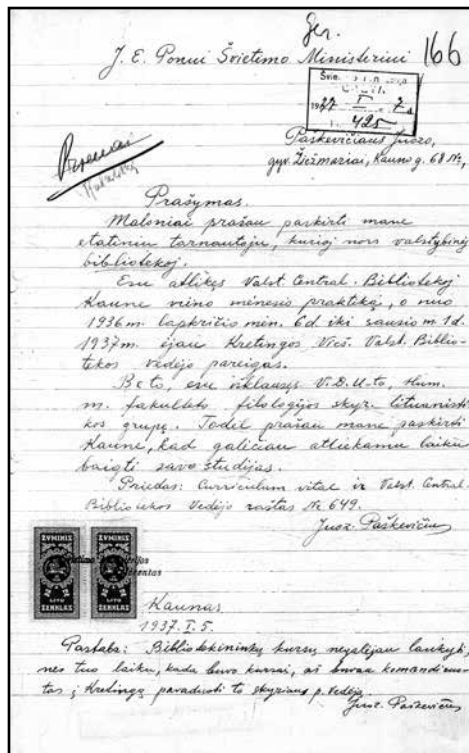 Ger.
J. E. Ponui Švietimo Ministeriui 166
Švie
1937 I 7 d.
425
Paškevičiaus Juozo,
gyv. Žiežmariai, Kauno g. 68 №,
Prašymas.
Maloniai prašau paskirti mane
etatiniu tarnautoju, kurioj nors valstybinėj
bibliotekoj.
Esu atlikęs Valst. Central. Bibliotekoj
Kaune vieno mėnesio praktiką, o nuo
1936 m. lapkričio mėn. 6 d. iki sausio m. 1 d.
1937 m. ėjau Kretingos Vieš. Valst. Biblio-
tekos vedėjo pareigas.
Be to, esu išklausęs V. D. U-to, Hum.
m. fakulteto filologijos skyr. lituanisti
kos grupę. Todėl prašau mane paskirti
Kaune, kad galėčiau atliekamu laiku
baigti savo studijas.
Priedas: Curriculum vitae ir Valst. Central.
Bibliotekos Vedėjo raštas № 649.
Juoz. Paškevičius
ŽYMINIS ŽYMINIS
2 2 2 2
LITU LITU
ŽENKLAS ŽENKLAS
Kaunas
1937. I. 5.
Pastaba: Bibliotekininkų kursų negalėjau lankyti,
nes tuo laiku, kada buvo kursai, aš buvau komandiruo-
tas į Kretingą pavaduoti to skyriaus p. vedėją.
Juoz. Paškevičius